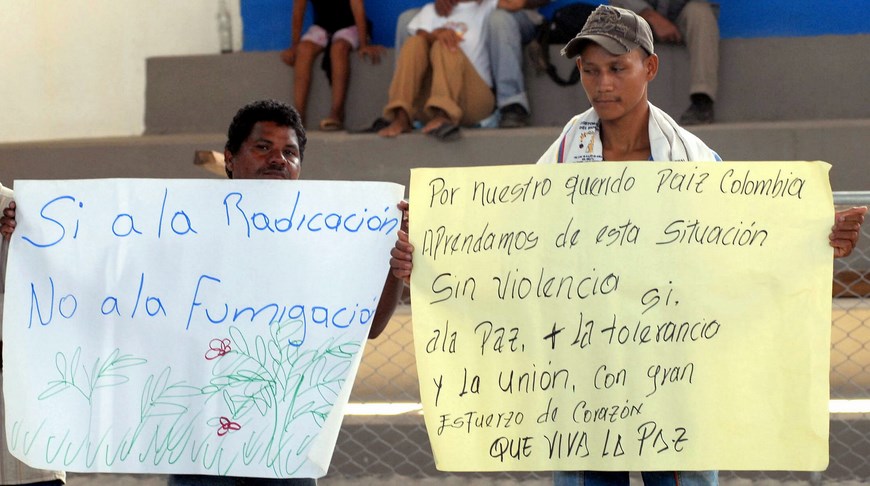 Si a la Radicación
No a la Fumigación
Por nuestro querido Paiz Colombia
Aprendamos de esta Situación
Sin violencia si.
ala Paz, + La tolerancia
y La unión, con gran
Esfuerzo de Corazón
QUE VIVA LA PAZ